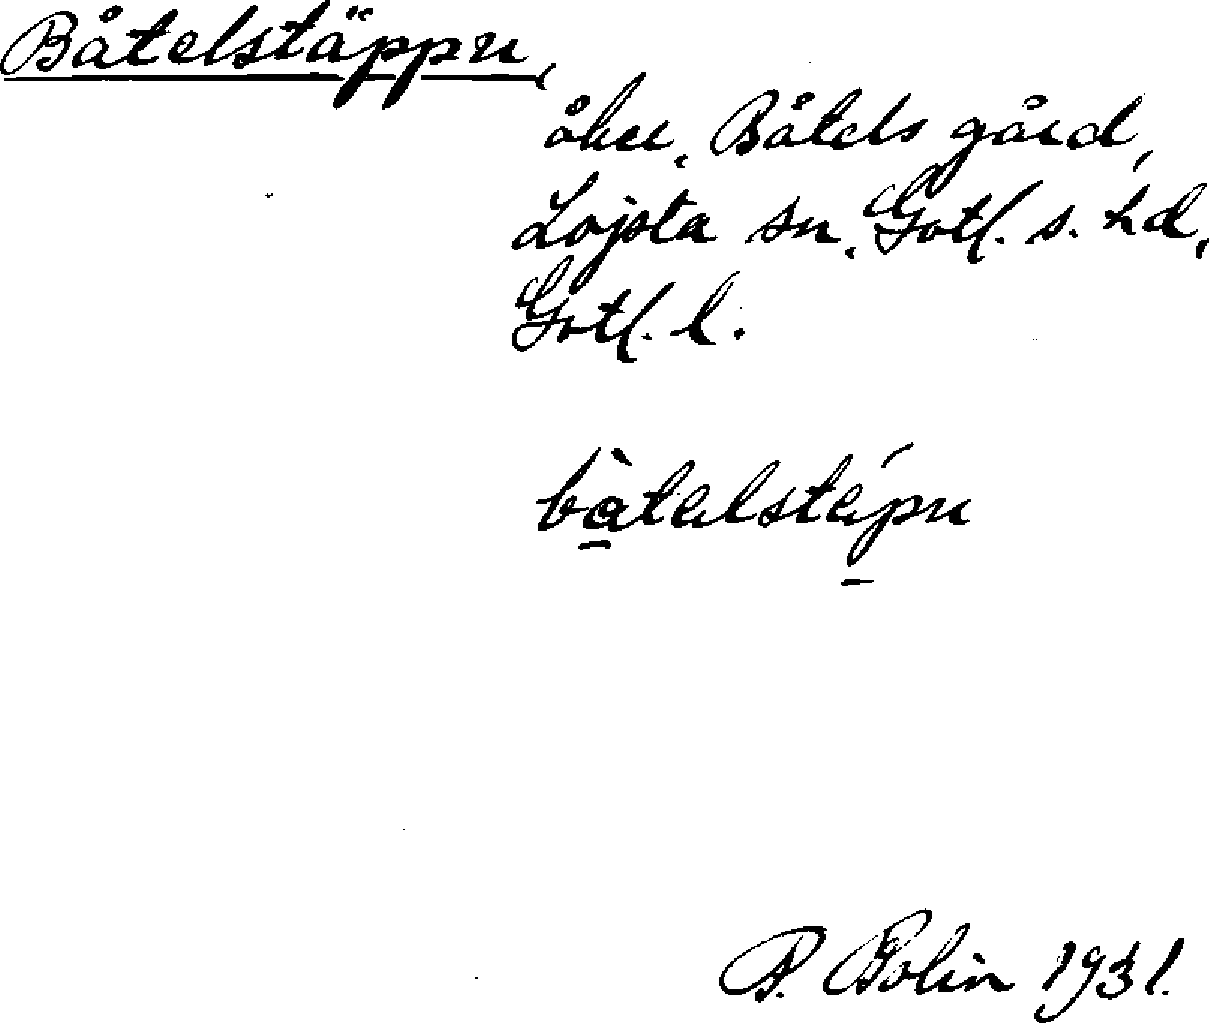 Båtelstäppu,
åker, Båtels gård,
Lojsta sn, Gotl. s. hd,
Gotl. l.
bàtelstápu
P. Bolin 1931.